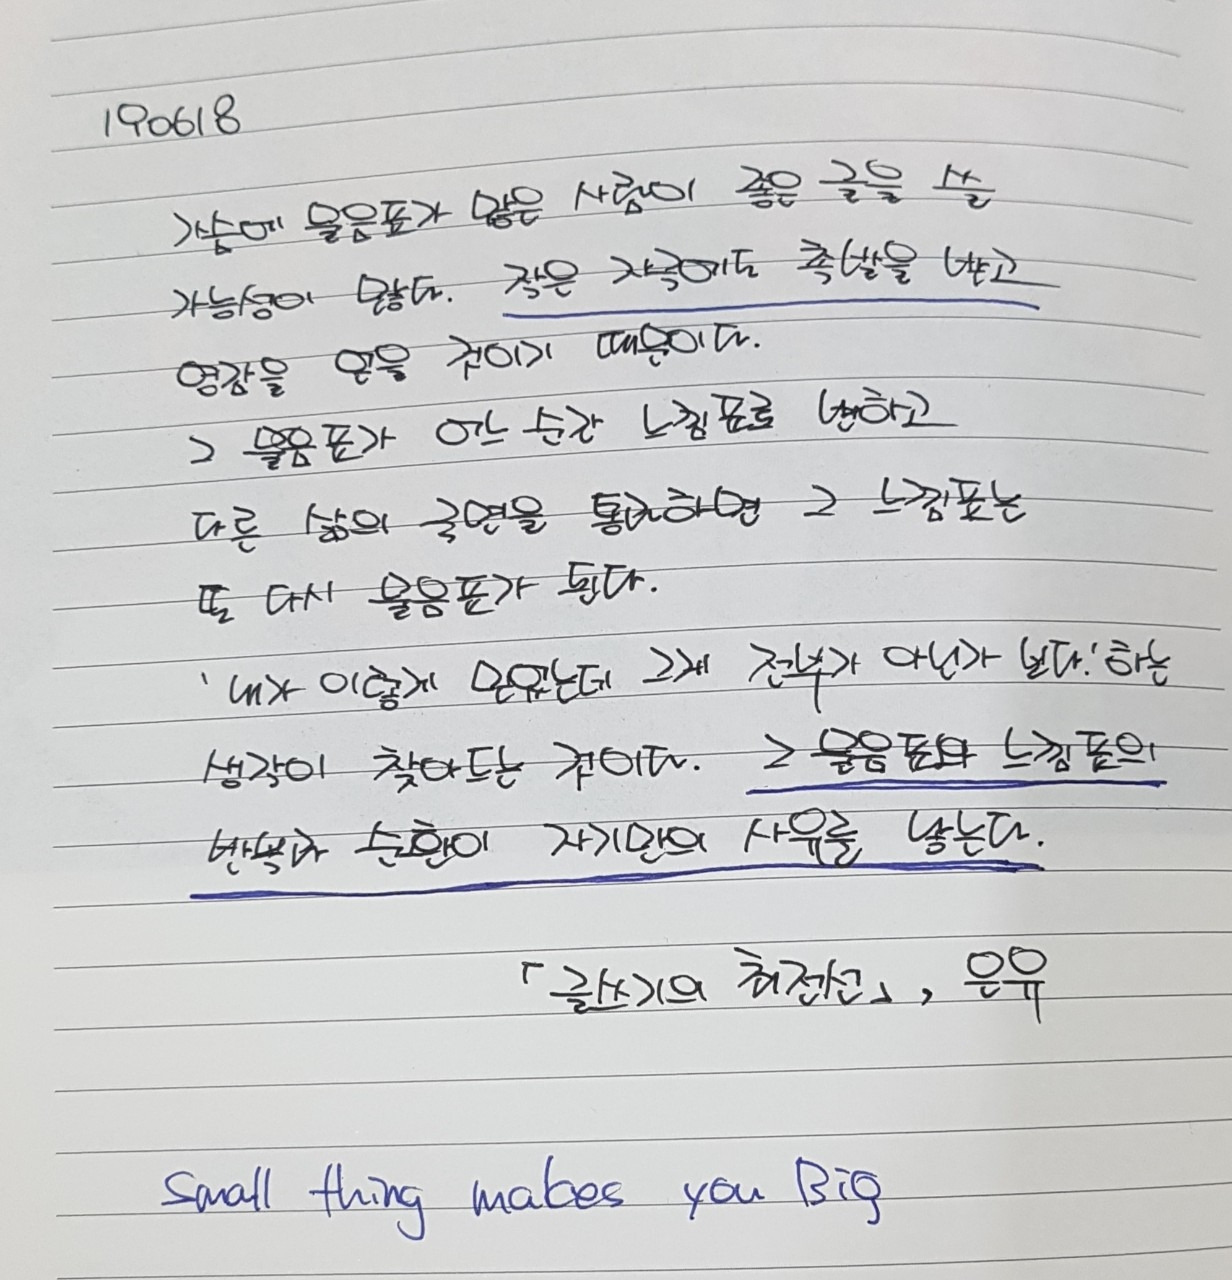 190618
가슴에 물음표가 많은 사람이 좋은 글을 쓸
가능성이 많다. 작은 자극에도 촉발을 받고
영감을 얻을 것이기 때문이다.
그 물음표가 어느 순간 느낌표로 변하고
다른 삶의 국면을 통과하면 그 느낌표는
또 다시 물음표가 된다.
'내가 이렇게 믿었는데 그게 전부가 아닌가 보다.' 하는
생각이 찾아드는 것이다. 그 물음표와 느낌표의
반복과 순환이 자기만의 사유를 낳는다.
「글쓰기의 최전선」, 은유
Small thing makes you Big